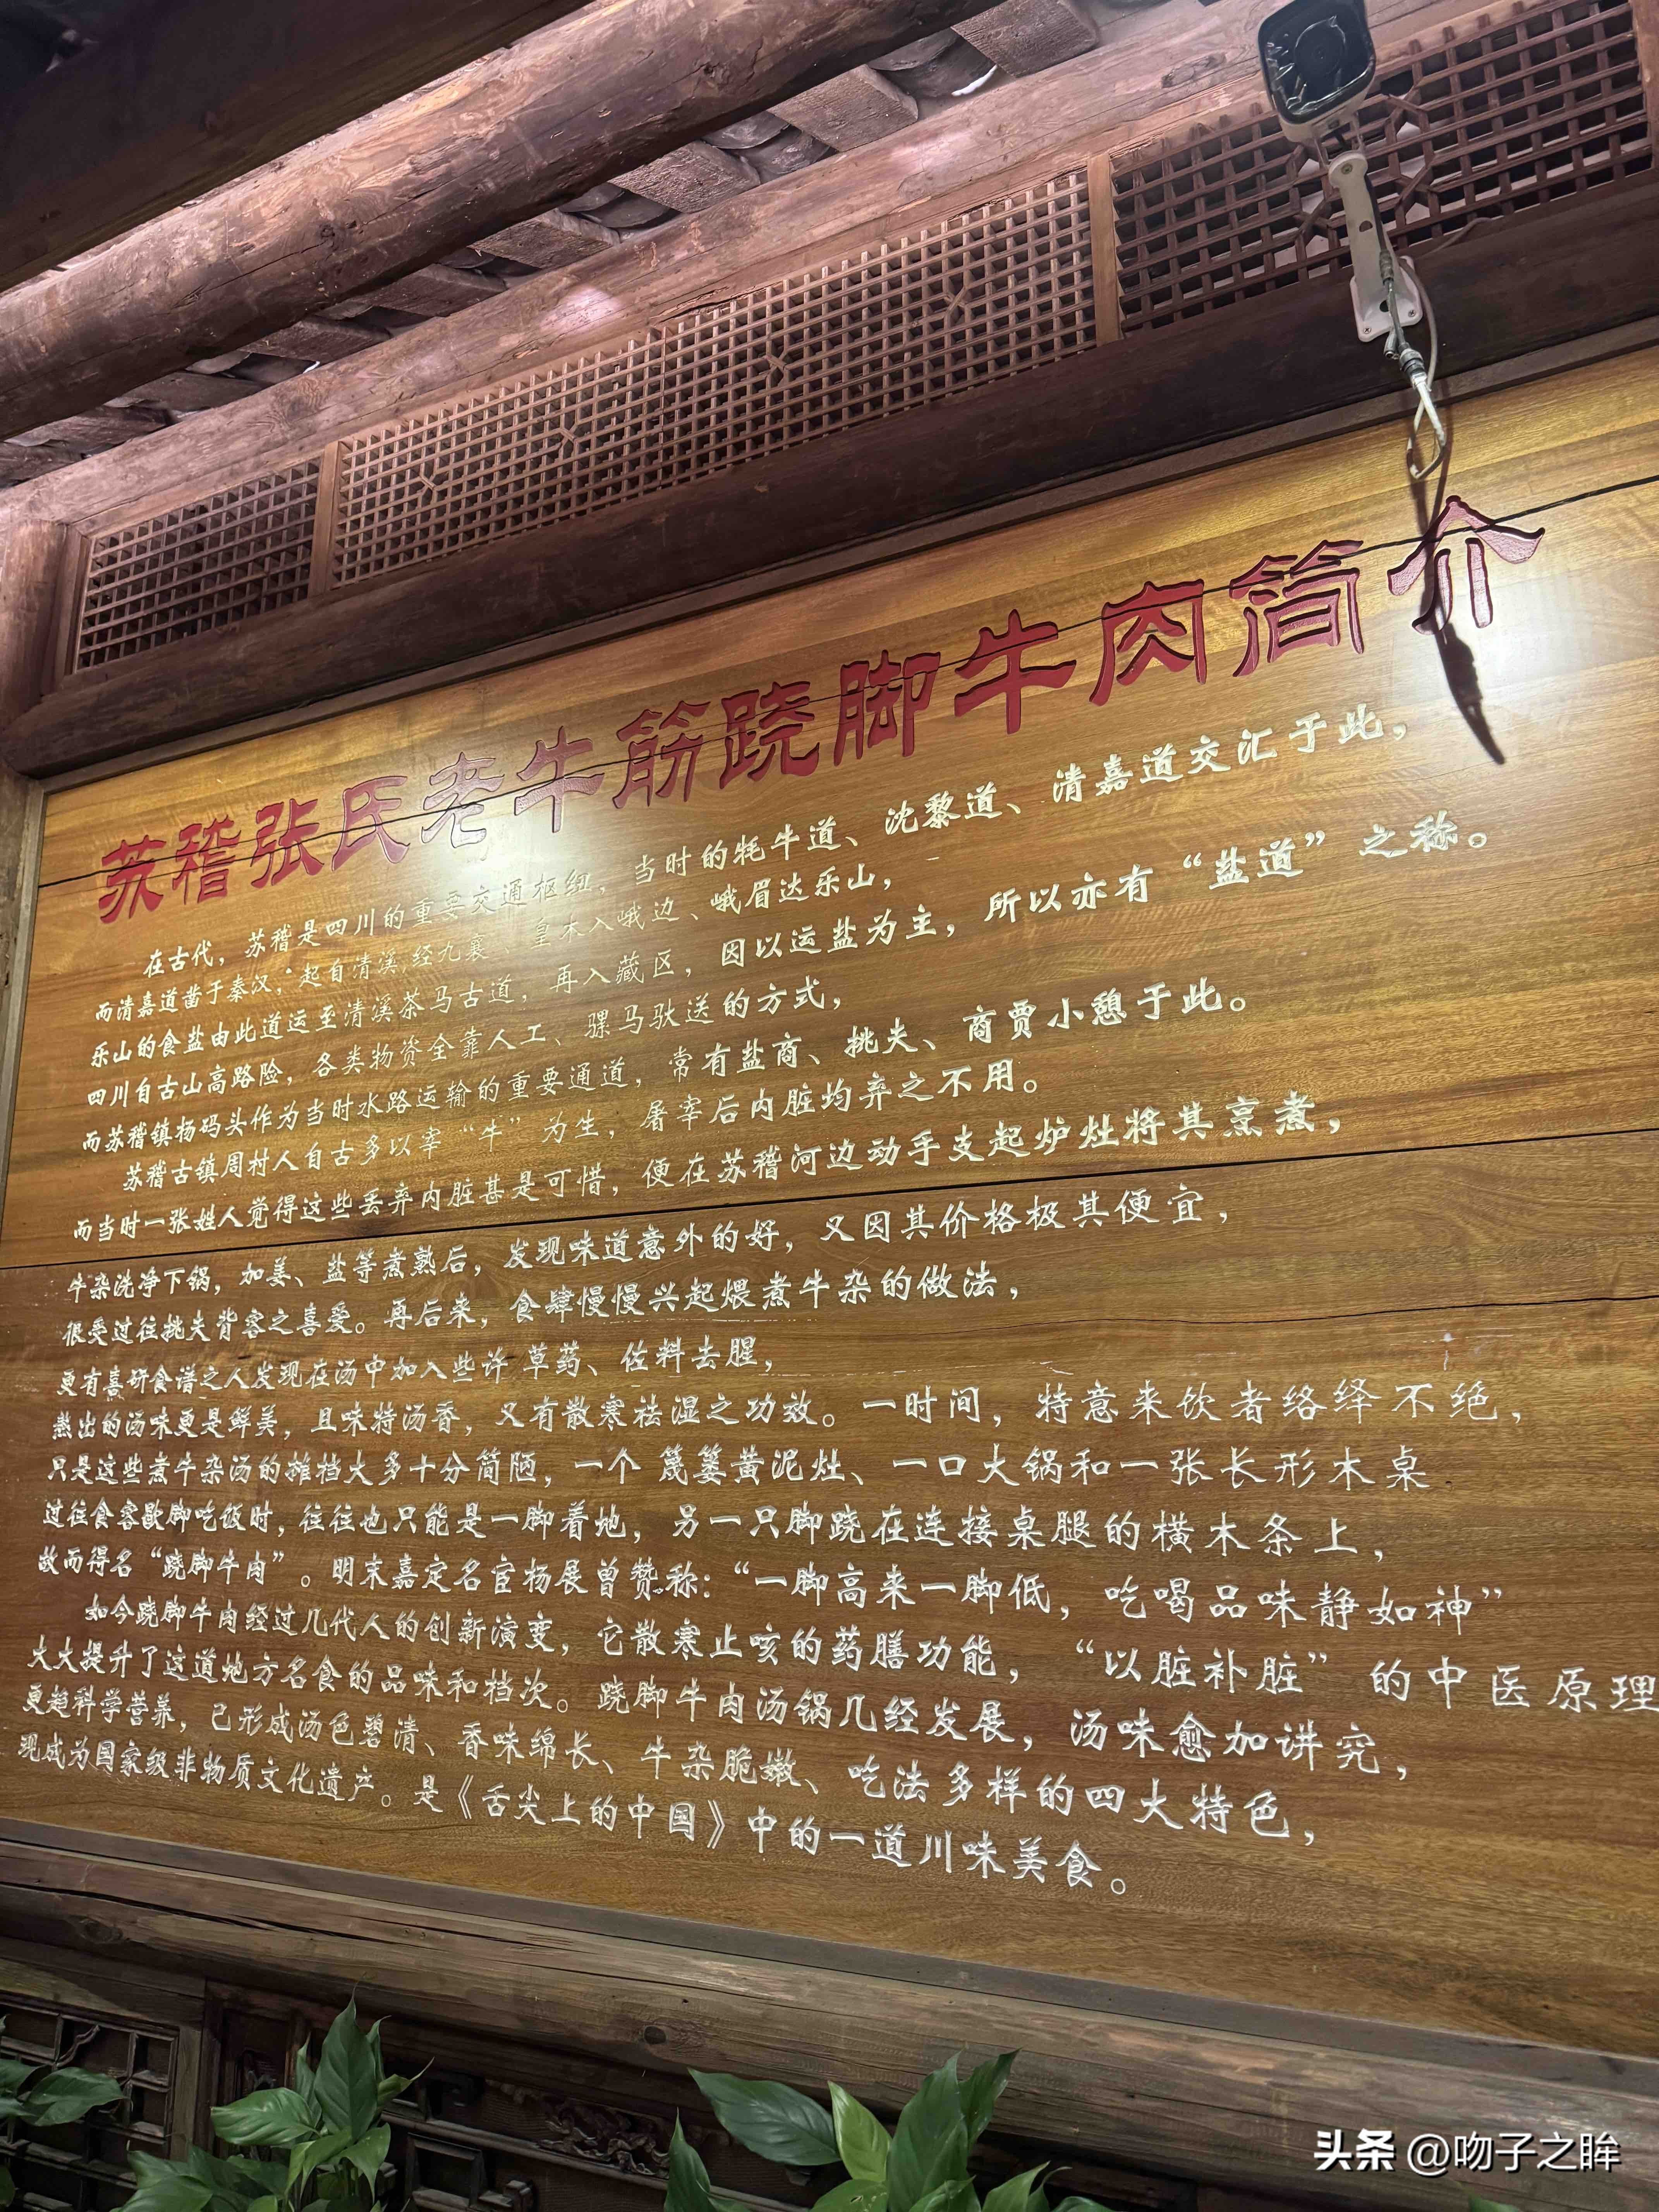 苏稽张氏老牛筋跷脚牛肉简介
在古代，苏稽是四川的重要交通枢纽，当时的牦牛道、沈黎道、清嘉道交汇于此，
而清嘉道凿于秦汉，起自清溪，经九襄、皇木入峨边、峨眉达乐山，
乐山的食盐由此道运至清溪茶马古道，再入藏区，因以运盐为主，所以亦有“盐道”之称。
四川自古山高路险，各类物资全靠人工、骡马驮送的方式，
而苏稽镇杨码头作为当时水路运输的重要通道，常有盐商、挑夫、商贾小憩于此。
苏稽古镇周村人自古多以宰“牛”为生，屠宰后内脏均弃之不用。
而当时一张姓人觉得这些丢弃内脏甚是可惜，便在苏稽河边动手支起炉灶将其烹煮，
牛杂洗净下锅，加姜、盐等煮熟后，发现味道意外的好，又因其价格极其便宜，
很受过往挑夫背客之喜爱。再后来，食肆慢慢兴起煨煮牛杂的做法，
更有喜研食谱之人发现在汤中加入些许草药、佐料去腥，
熬出的汤味更是鲜美，且味特汤香，又有散寒祛湿之功效。一时间，特意来饮者络绎不绝，
只是这些煮牛杂汤的摊档大多十分简陋，一个篾篓黄泥灶、一口大锅和一张长形木桌
过往食客歇脚吃饭时，往往也只能是一脚着地，另一只脚跷在连接桌腿的横木条上，
故而得名“跷脚牛肉”。明末嘉定名宦杨展曾赞称：“一脚高来一脚低，吃喝品味静如神”
如今跷脚牛肉经过几代人的创新演变，它散寒止咳的药膳功能，“以脏补脏”的中医原理
大大提升了这道地方名食的品味和档次。跷脚牛肉汤锅几经发展，汤味愈加讲究，
更超科学营养，已形成汤色碧清、香味绵长、牛杂脆嫩、吃法多样的四大特色，
现成为国家级非物质文化遗产。是《舌尖上的中国》中的一道川味美食。
头条 @吻子之眸